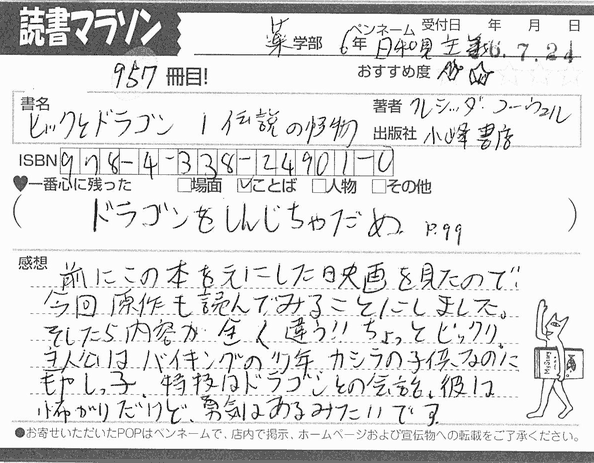 読書マラソン
薬学部 6年 ペンネーム 日和見主義 受付日 年 月 日
16.7.24
957冊目!
おすすめ度
書名 ヒックとドラゴン 1 伝説の怪物
著者 クレシッダ・コーウェル
出版社 小峰書店
ISBN 978-4-338-24901-0
♥一番心に残った □場面 ☑ことば □人物 □その他
(ドラゴンをしんじちゃだめ P.99)
感想
前にこの本を元にした映画を見たので、
今回原作も読んでみることにしました。
そしたら内容が全く違う!!ちょっとビックリ。
主人公はバイキングの少年 カシラの子供、なのに
もやしっ子。特技はドラゴンとの会話。彼は
怖がりだけど、勇気はあるみたいです
●お寄せいただいたPOPはペンネームで、店内で掲示、ホームページおよび宣伝物への転載をご了承ください。